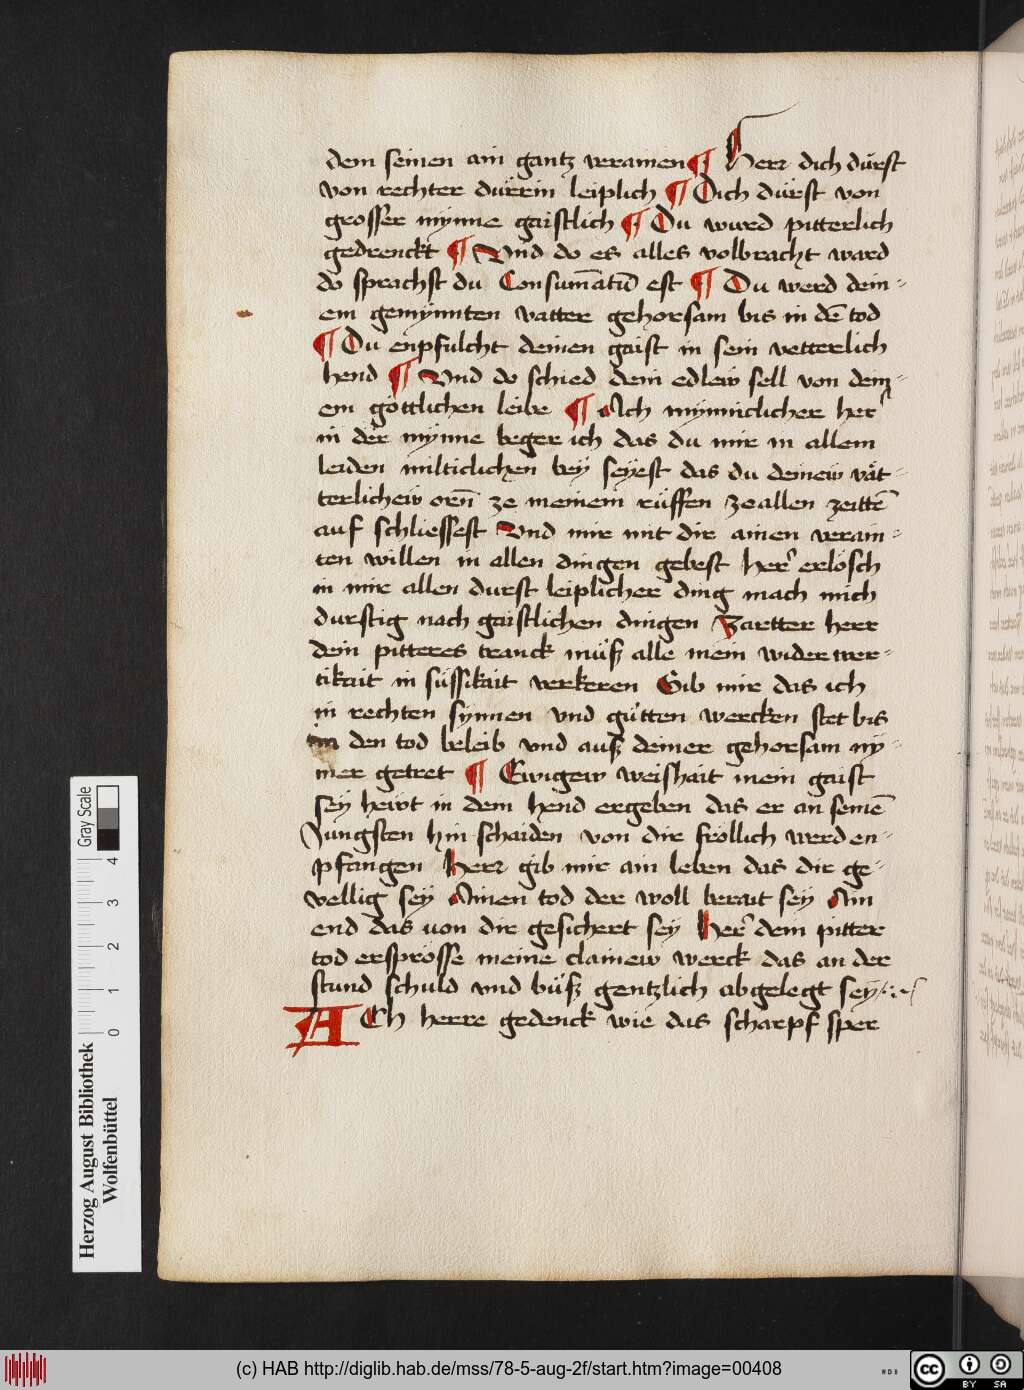 dem seinen ain gantz verainen ¶ Herr dich dürst
von rechter dürrin leiplich ¶ Dich dürst von
grosser mÿnne gaistlich ¶ Du wurd pitterlich
gedrenckt ¶ Vnd do es alles volbracht ward
do sprachst du Consum̄atū est ¶ Du werd dein-
em gemÿnnten vatter gehorsam bis in dē tod
¶ Du enpfulcht deinen gaist in sein vetterlich
hend ¶ Vnd do schied dein edlew sell von dein-
em gőttlichen leibe ¶ Ach mÿnniclicher her
in der mÿnne beger ich das du mir in allem
leiden milticlichen beÿ seÿest das du deinew vät-
terlichew orn̄ ze meinem rüffen ze allen zeittē
auf schliessest Vnd mir mit dir ainen verain-
ten willen in allen dingen gebest her erlősch
in mir allen durst leiplicher ding mach mich
durstig nach gaistlichen dingen Zartter herr
dein pitteres tranck müß alle mein widerwer-
tikait in süssikait verkeren Gib mir das ich
in rechten sÿnnen vnd gůtten wercken stet bis
in den tod beleib vnd auß deiner gehorsam nÿ-
mer getret ¶ Ewigew weishait mein gaist
seÿ hewt in dem hend ergeben das er an seinē
Jungsten hin schaiden von dir frőllich werd en-
pfangen Herr gib mir ain leben das dir ge-
vellig seÿ Ainen tod der woll berait seÿ Ain
end das von dir gesichert seÿ Her dem pitter
tod ersprosse meine clainew werck das an der
stund schuld vnd büß gentzlich abgelegt seÿ
ACh herre gedenck wie das scharpf sper
Herzog August Bibliothek
Wolfenbüttel
0 1 2 3 4
Gray Scale
(c) HAB http://diglib.hab.de/mss/78-5-aug-2f/start.htm?image=00408
WDB
cc BY SA